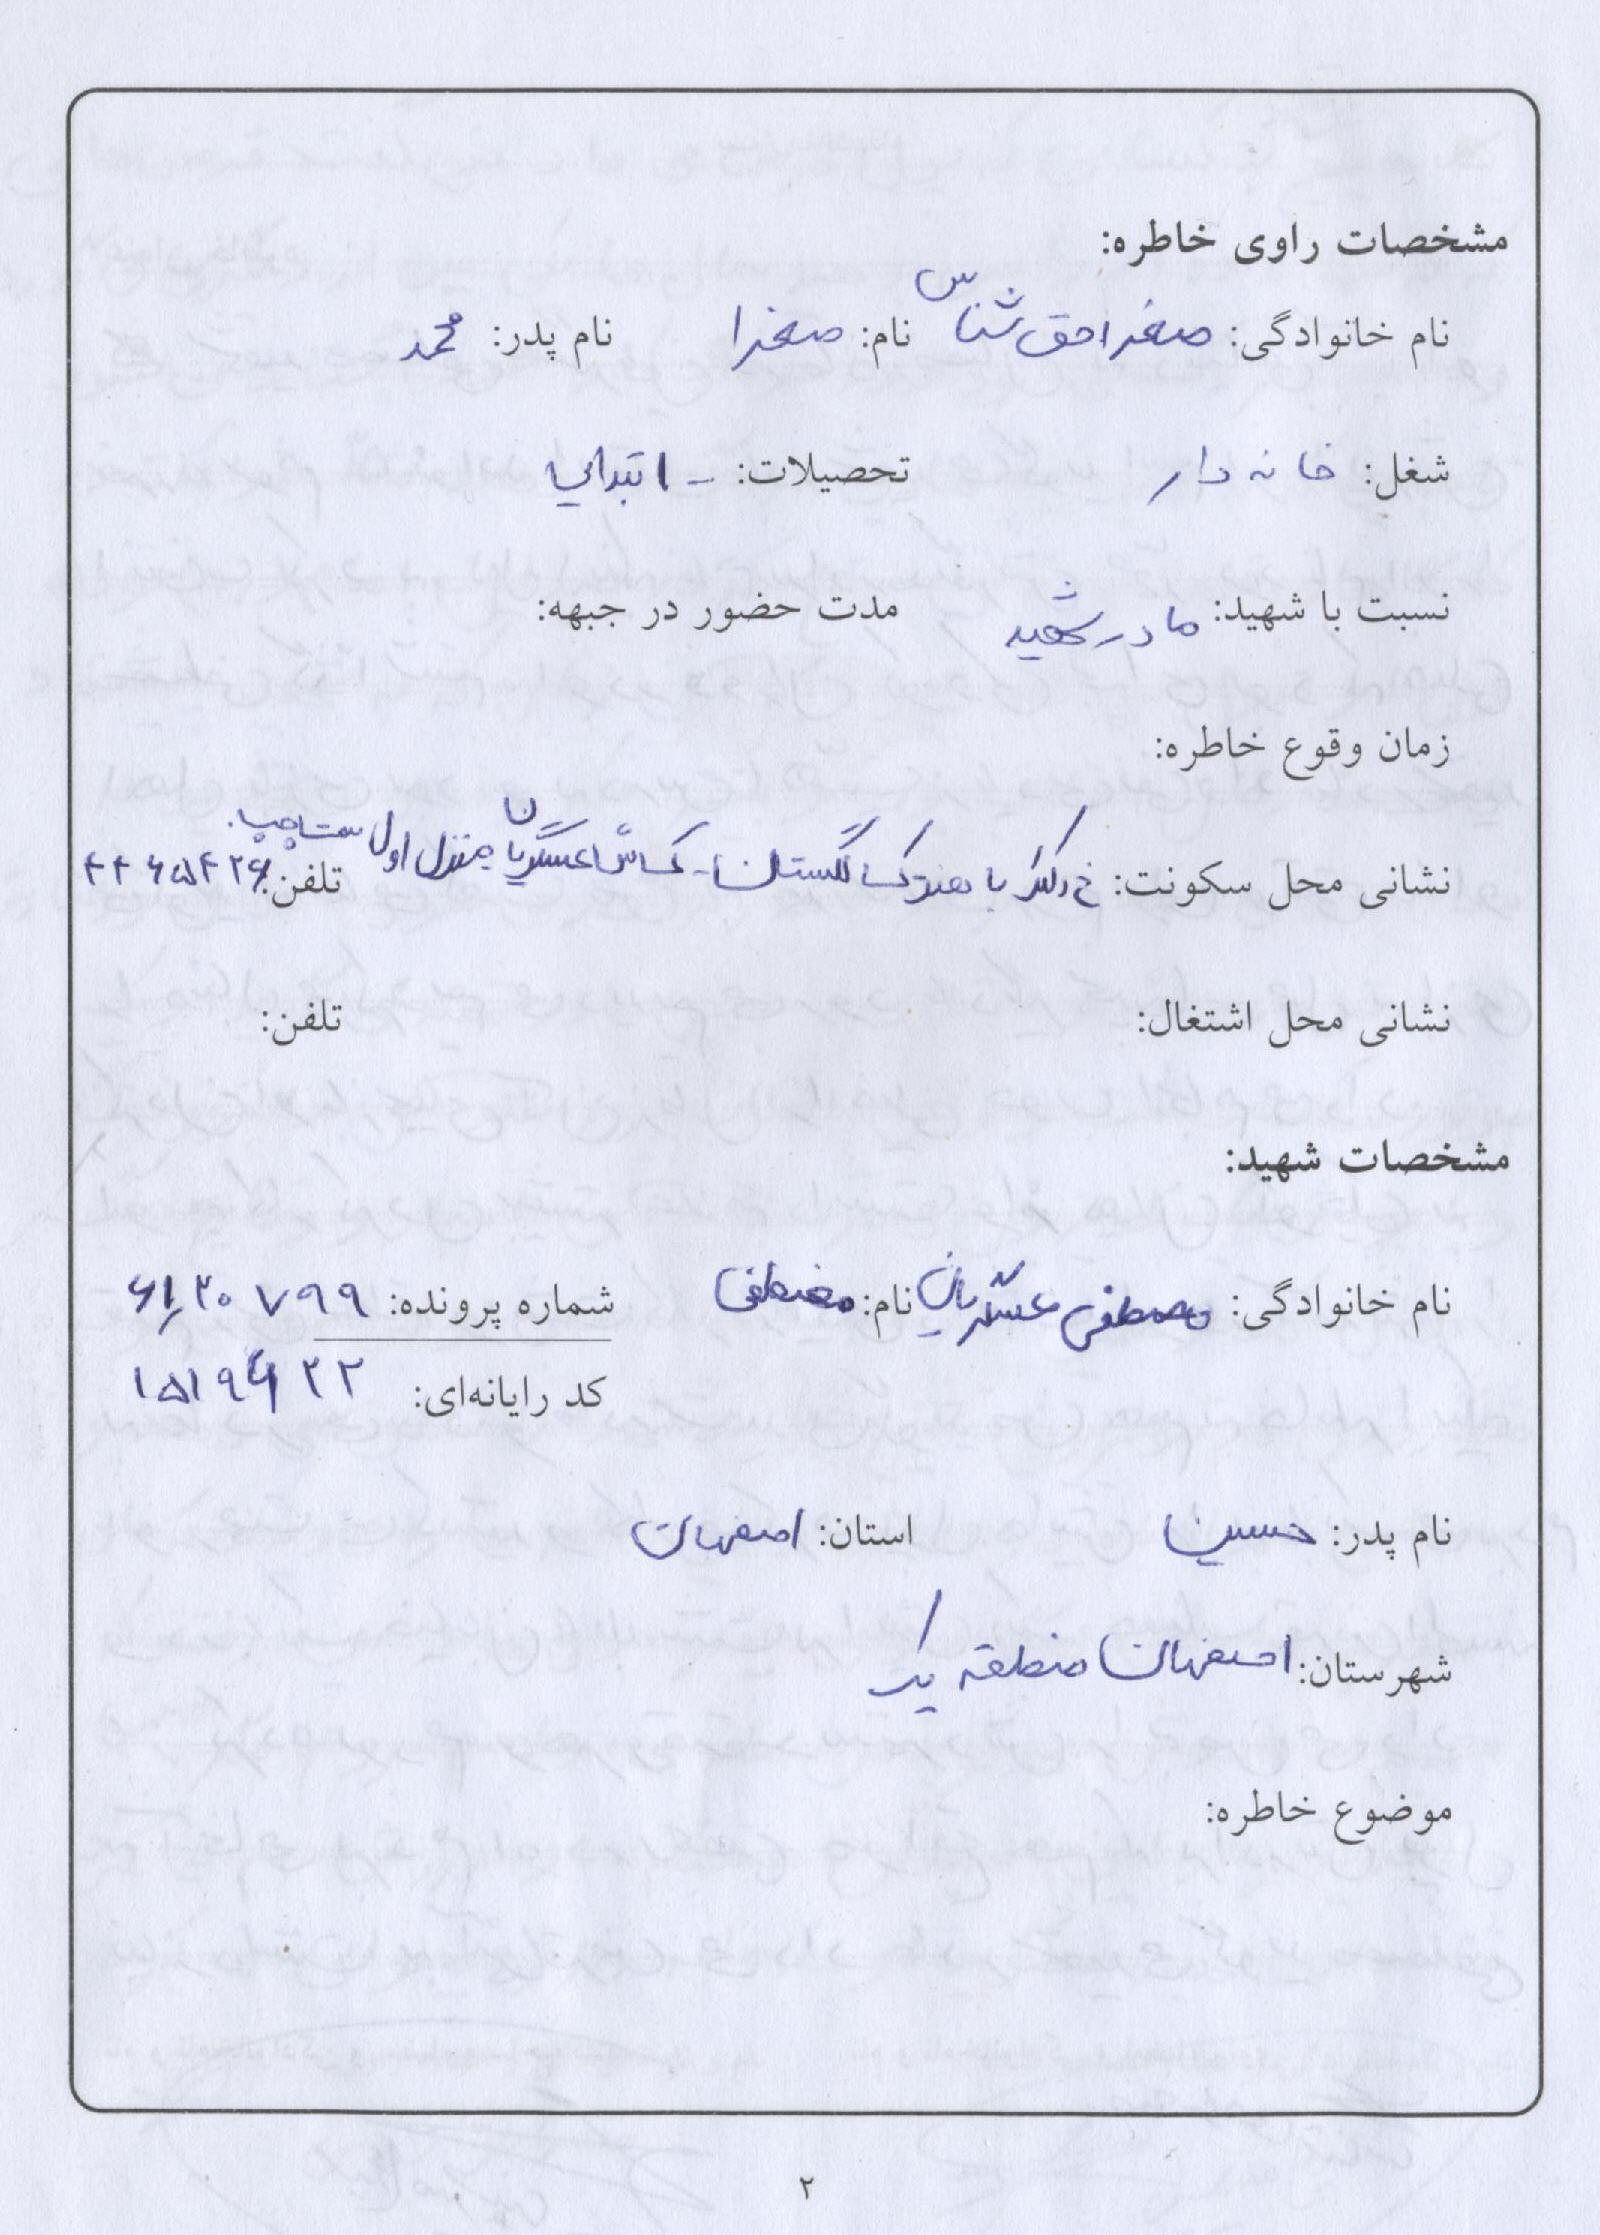 مشخصات راوی خاطره:
نام خانوادگی: صغرا حق شناس نام: صغرا نام پدر: محمد
شغل: خانه دار تحصیلات: - ابتدایی
نسبت با شهید: مادر شهید مدت حضور در جبهه:
زمان وقوع خاطره:
نشانی محل سکونت: خ دکتر باهنر ک گلستان - ک عسگریان منزل اول سمت چپ. تلفن:
نشانی محل اشتغال: تلفن:
مشخصات شهید:
نام خانوادگی: مصطفی عسگریان نام: مصطفی شماره پرونده: ۶۱۲۰۷۹۹
کد رایانه‌ای: ۱۵۱۹۶۲۲
نام پدر: حسین استان: اصفهان
شهرستان: اصفهان منطقه یک
موضوع خاطره:
۲